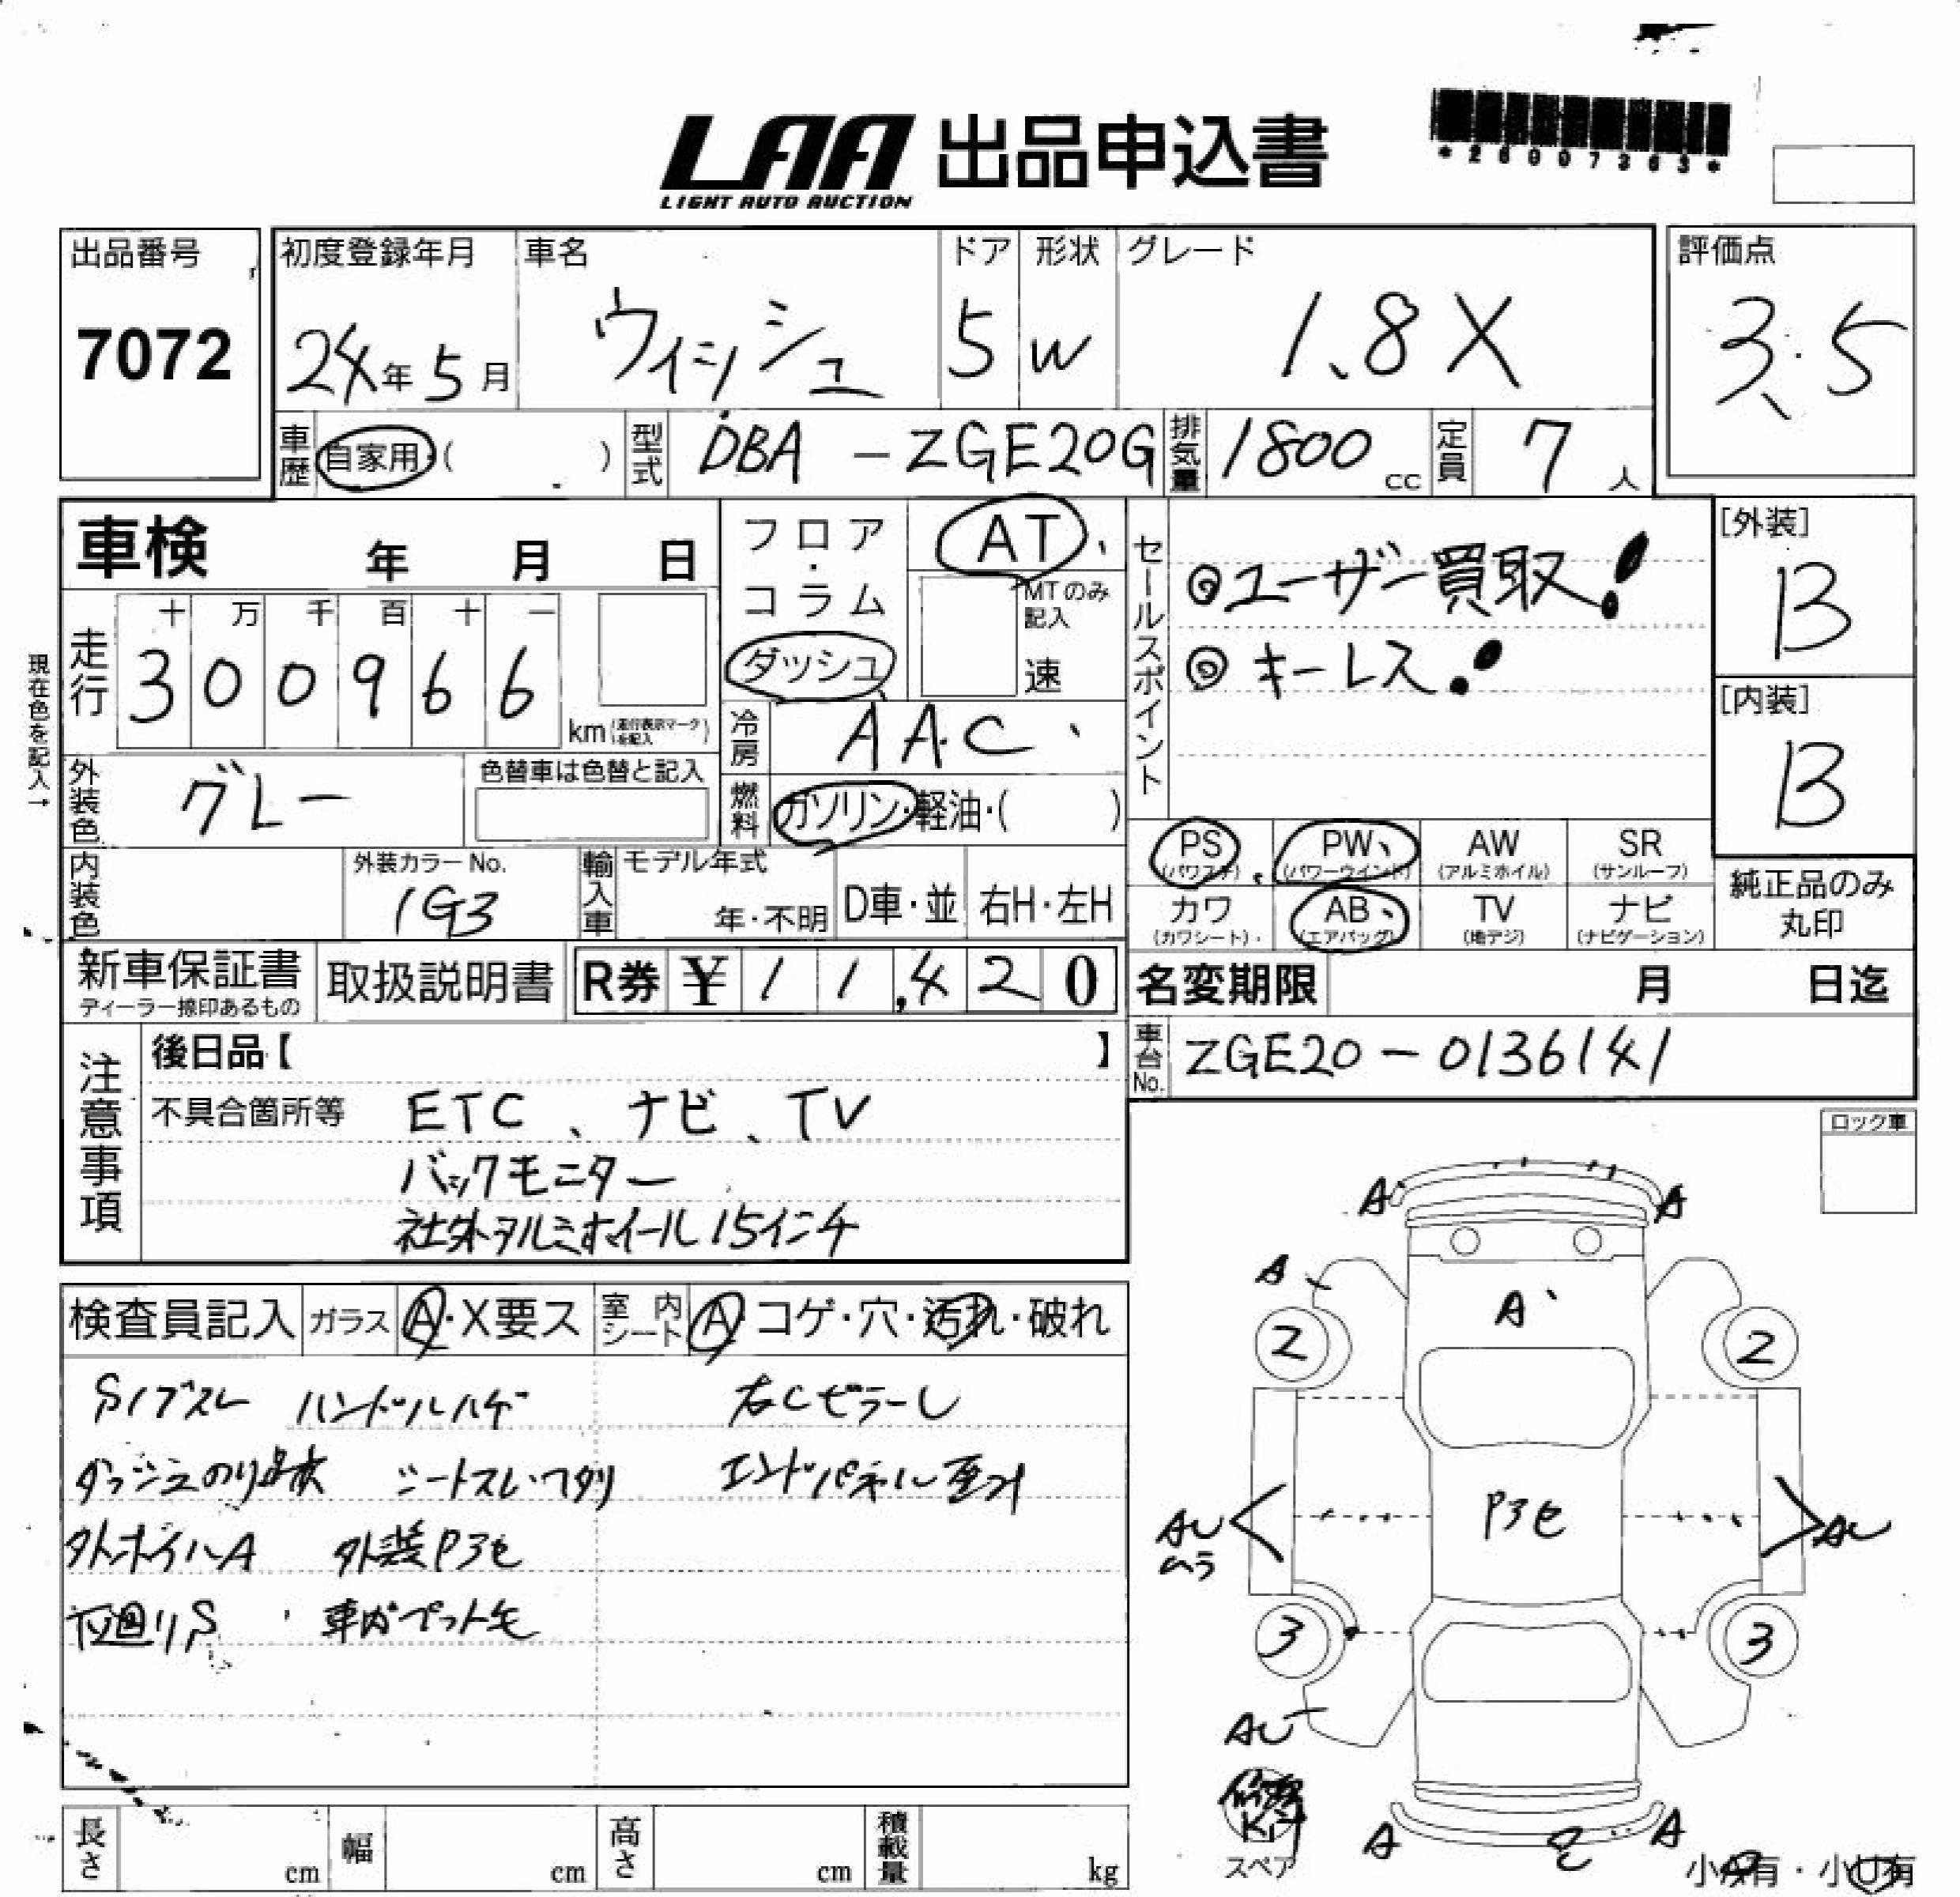 LAA 出品申込書
LIGHT AUTO AUCTION
*26007363*
出品番号
7072
初度登録年月 車名 ドア 形状 グレード
24年5月 ウィッシュ 5 W 1.8X
評価点
3.5
車歴 自家用・( ) 型式 DBA-ZGE20G 排気量 1800cc 定員 7人
車検 年 月 日
フロア・コラム
ダッシュ
AT
MTのみ記入
速
現在色を記入→
走行 十 万 千 百 十 一
300966
km (走行表示マークを記入)
冷房 AAC
燃料 ガソリン・軽油・( )
外装色 グレー
色替車は色替と記入
内装色
外装カラーNo.
1G3
輸入車 モデル年式
年・不明 D車・並 右H・左H
セールスポイント
◎ユーザー買取!
◎キーレス!
[外装]
B
[内装]
B
PS (パワステ) PW (パワーウインド) AW (アルミホイル) SR (サンルーフ)
カワ (カワシート) AB (エアバッグ) TV (地デジ) ナビ (ナビゲーション)
純正品のみ
丸印
新車保証書
ディーラー捺印あるもの
取扱説明書
R券 ¥11,420
名変期限 月 日迄
車台No. ZGE20-0136141
注意事項
後日品【 】
不具合箇所等 ETC、ナビ、TV
バックモニター
社外アルミホイール15インチ
ロック車
検査員記入 ガラス A・X要ス 室内シート A コゲ・穴・汚れ・破れ
ハンドルハゲ 右Cピラーし
ダッシュのり跡 シートスレ・ヘタリ エンドパネル歪み
ホイールA 外装P3セ
下廻りS 車内ペット毛
A A
A A
2 2
AU ムラ P3セ AU
3 3
AU
スペア
A A
小A有・小U有
長さ cm 幅 cm 高さ cm 積載量 kg